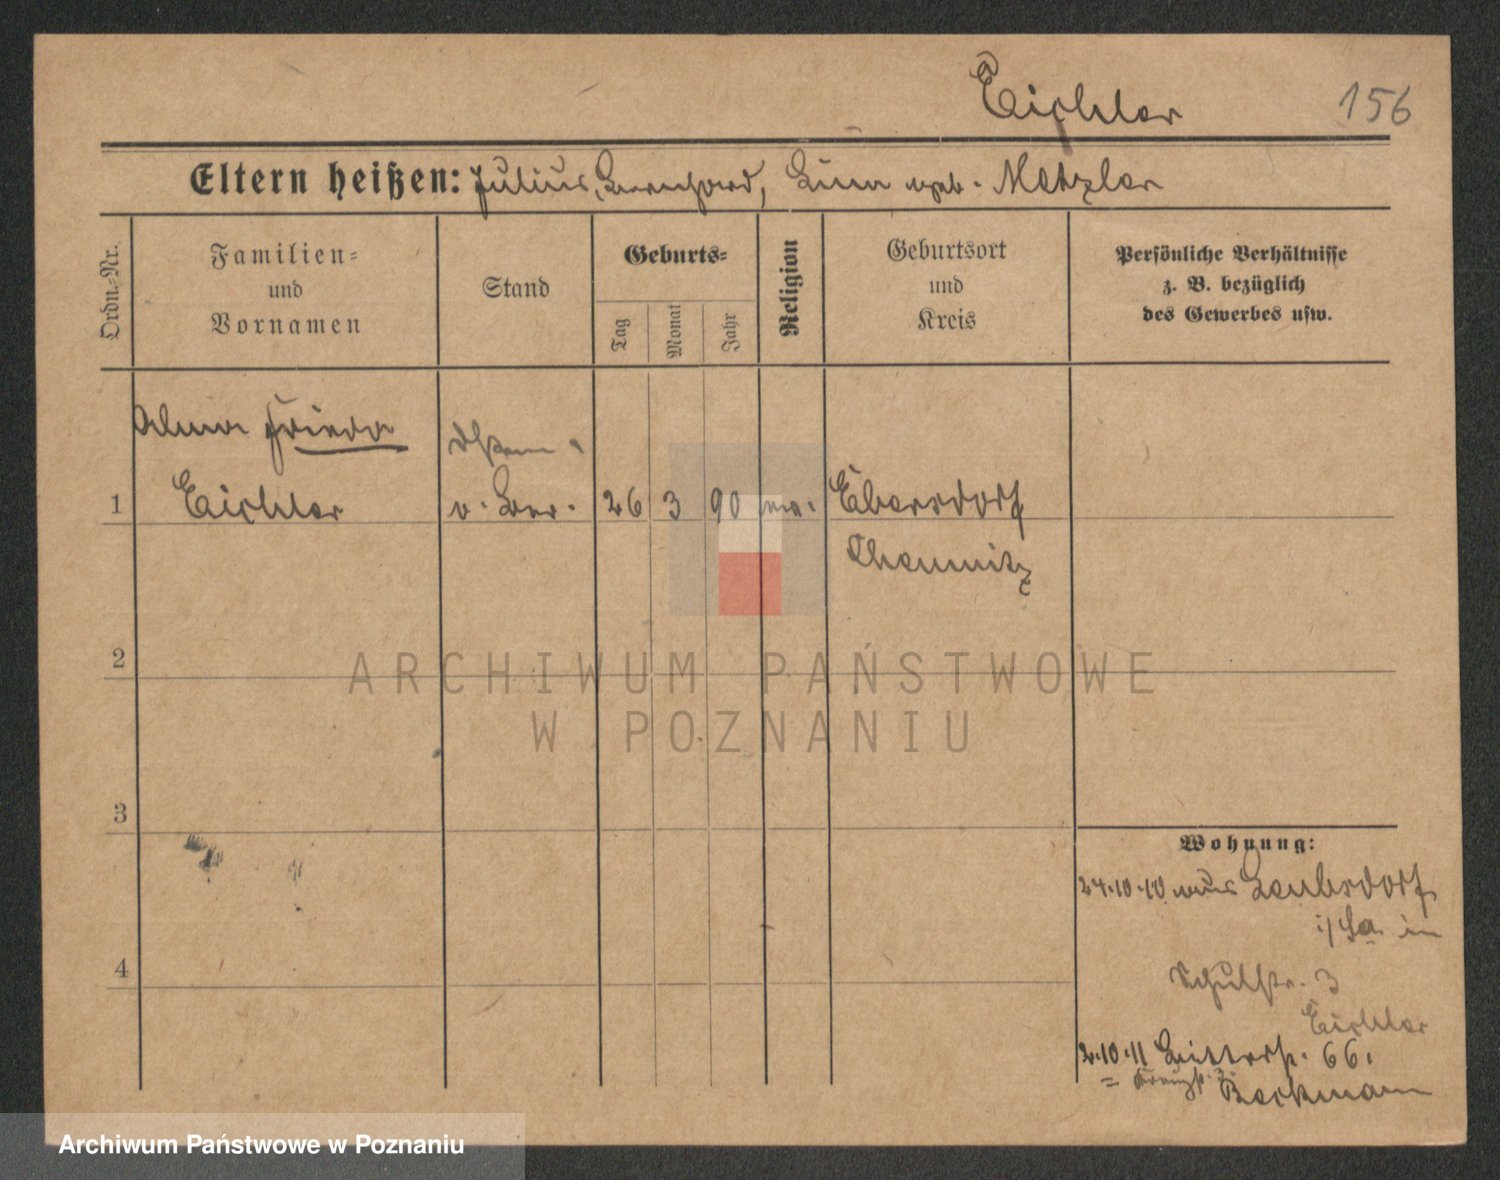 Eichler 156
Eltern heißen: Julius, Bernhard, Lina geb. Metzler
Ordn.-Nr.
Familien-
und
Vornamen
Stand
Geburts-
Tag
Monat
Jahr
Religion
Geburtsort
und
Kreis
Persönliche Verhältnisse
z. B. bezüglich
des Gewerbes usw.
Alma Frieda
1 Eichler
26 3 90 Ebersdorf
Chemnitz
2
3
4
Wohnung:
24.10.10 aus Leubsdorf
i/Sa. in
Schulstr. 3
Eichler
2.10.11 66.
Beckmann
ARCHIWUM PAŃSTWOWE
W POZNANIU
Archiwum Państwowe w Poznaniu